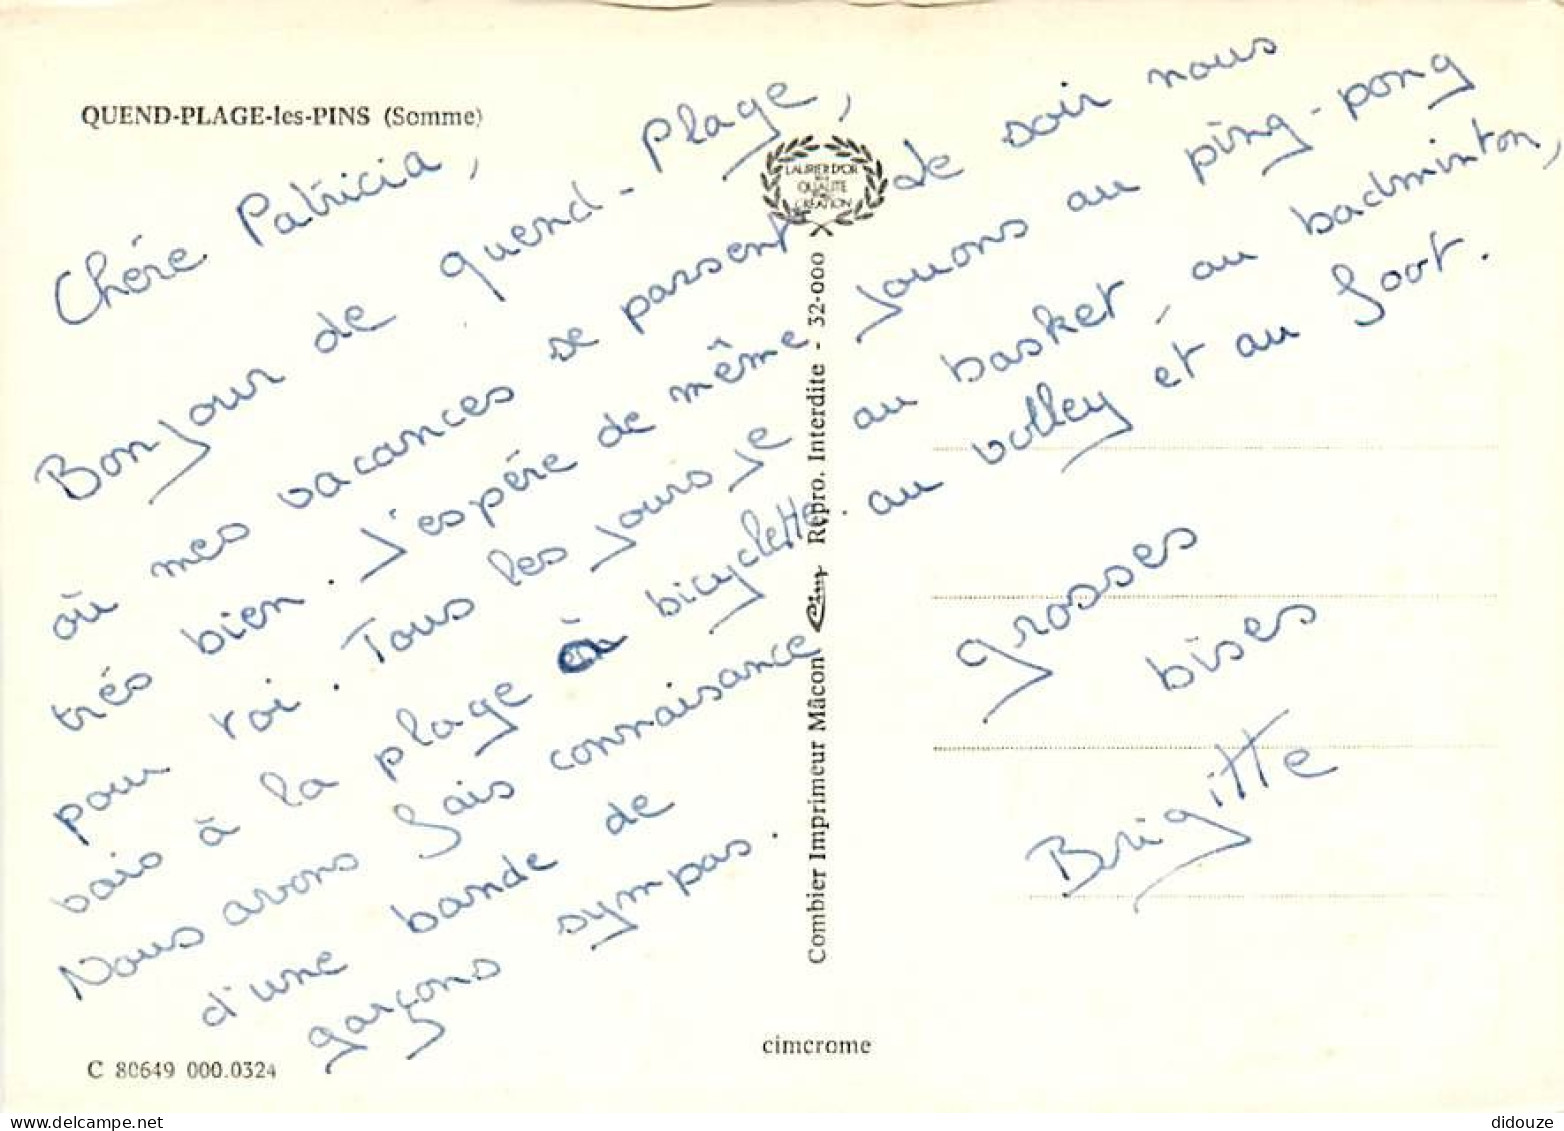 QUEND-PLAGE-les-PINS (Somme)
Chére Patricia,
Bonjour de quend-Plage,
où mes vacances se passent
trés bien. J'espére de même
pour toi. Tous les jours je
vais à la plage à bicyclette.
Nous avons fais connaisance
d'une bande de
garçons sympas.
Le soir nous
jouons au ping-pong
au basket, au badminton,
au volley et au foot.
grosses
bises
Brigitte
LAURIER D'OR
DE LA
QUALITE
CREATION
Combier Imprimeur Mâcon Cim Repro. Interdite - 32-000
cimcrome
C 80649 000.0324
didouze